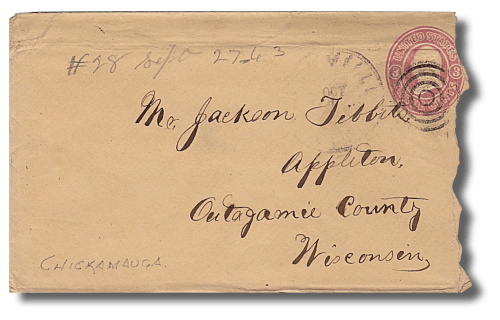 #28 Sept 27-63
OCT
UNITED STATES
3 3
Mr. Jackson Tibbits,
Appleton,
Outagamie County
Wisconsin,
CHICKAMAUGA.